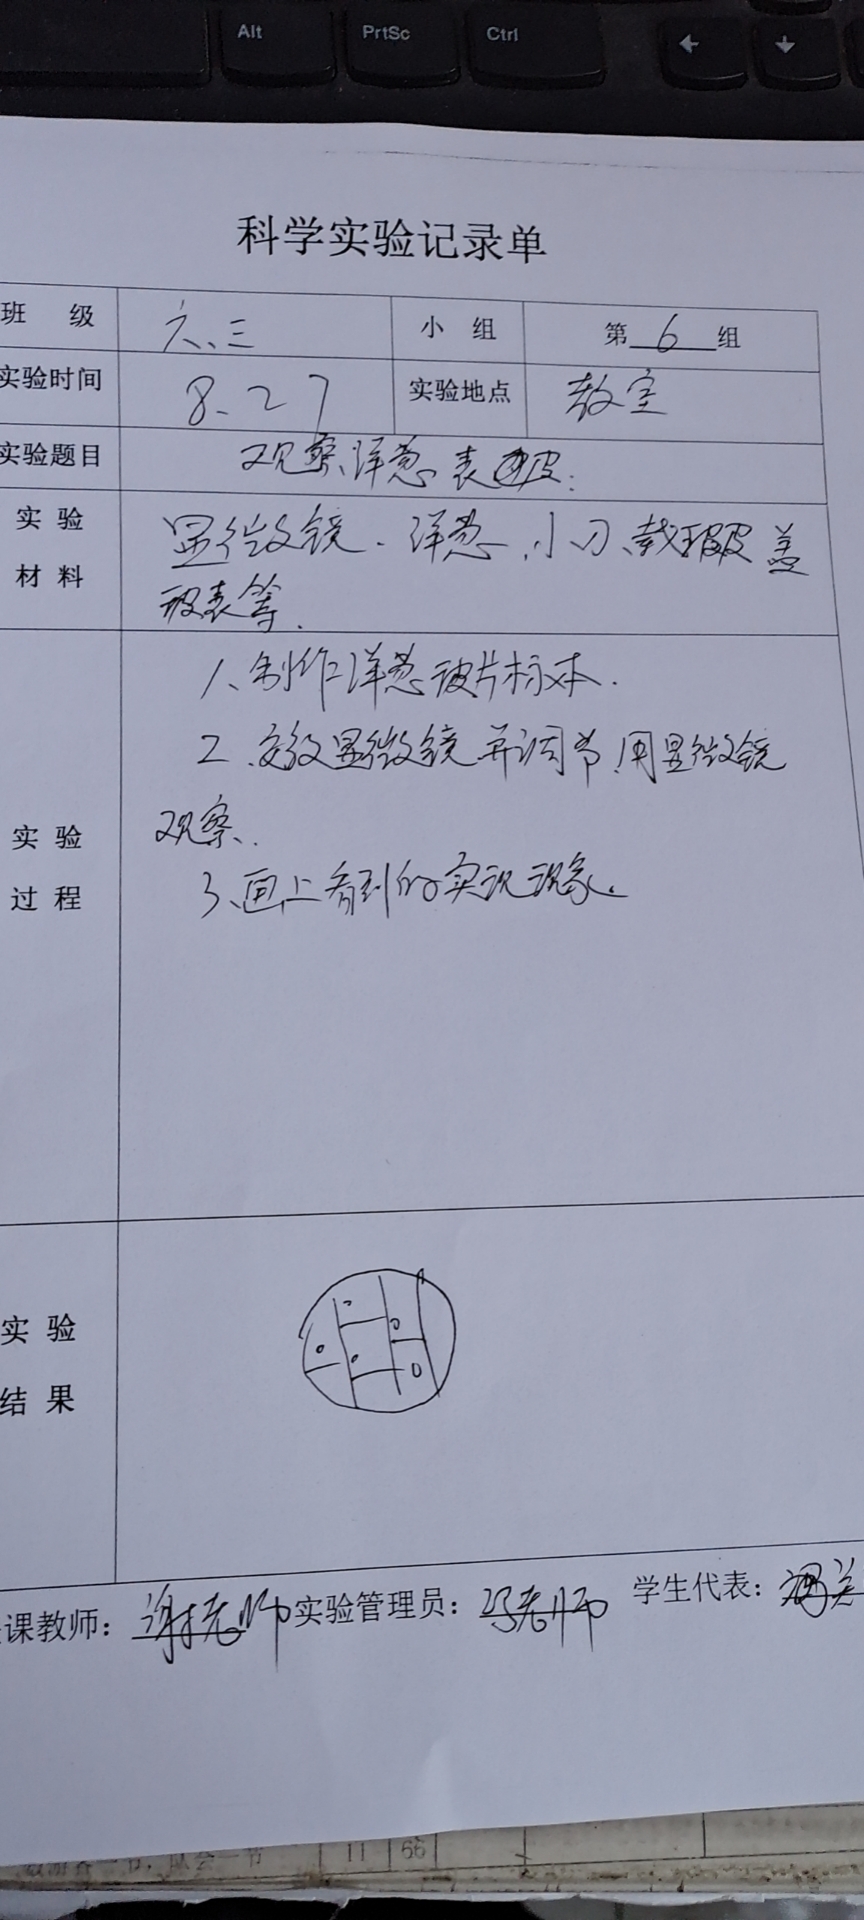 Alt PrtSc Ctrl
科学实验记录单
班 级 六.三 小 组 第 6 组
实验时间 8.27 实验地点 教室
实验题目 观察洋葱表皮.
实 验 显微镜、洋葱、小刀、载玻 盖
材 料 玻表等.
1、制作洋葱玻片标本.
2、安放显微镜并调节,用显微镜
实 验 观察.
过 程 3、画上看到的实况现象.
实 验
结 果
课教师: 谢老师 实验管理员: 冯老师 学生代表:
11 66